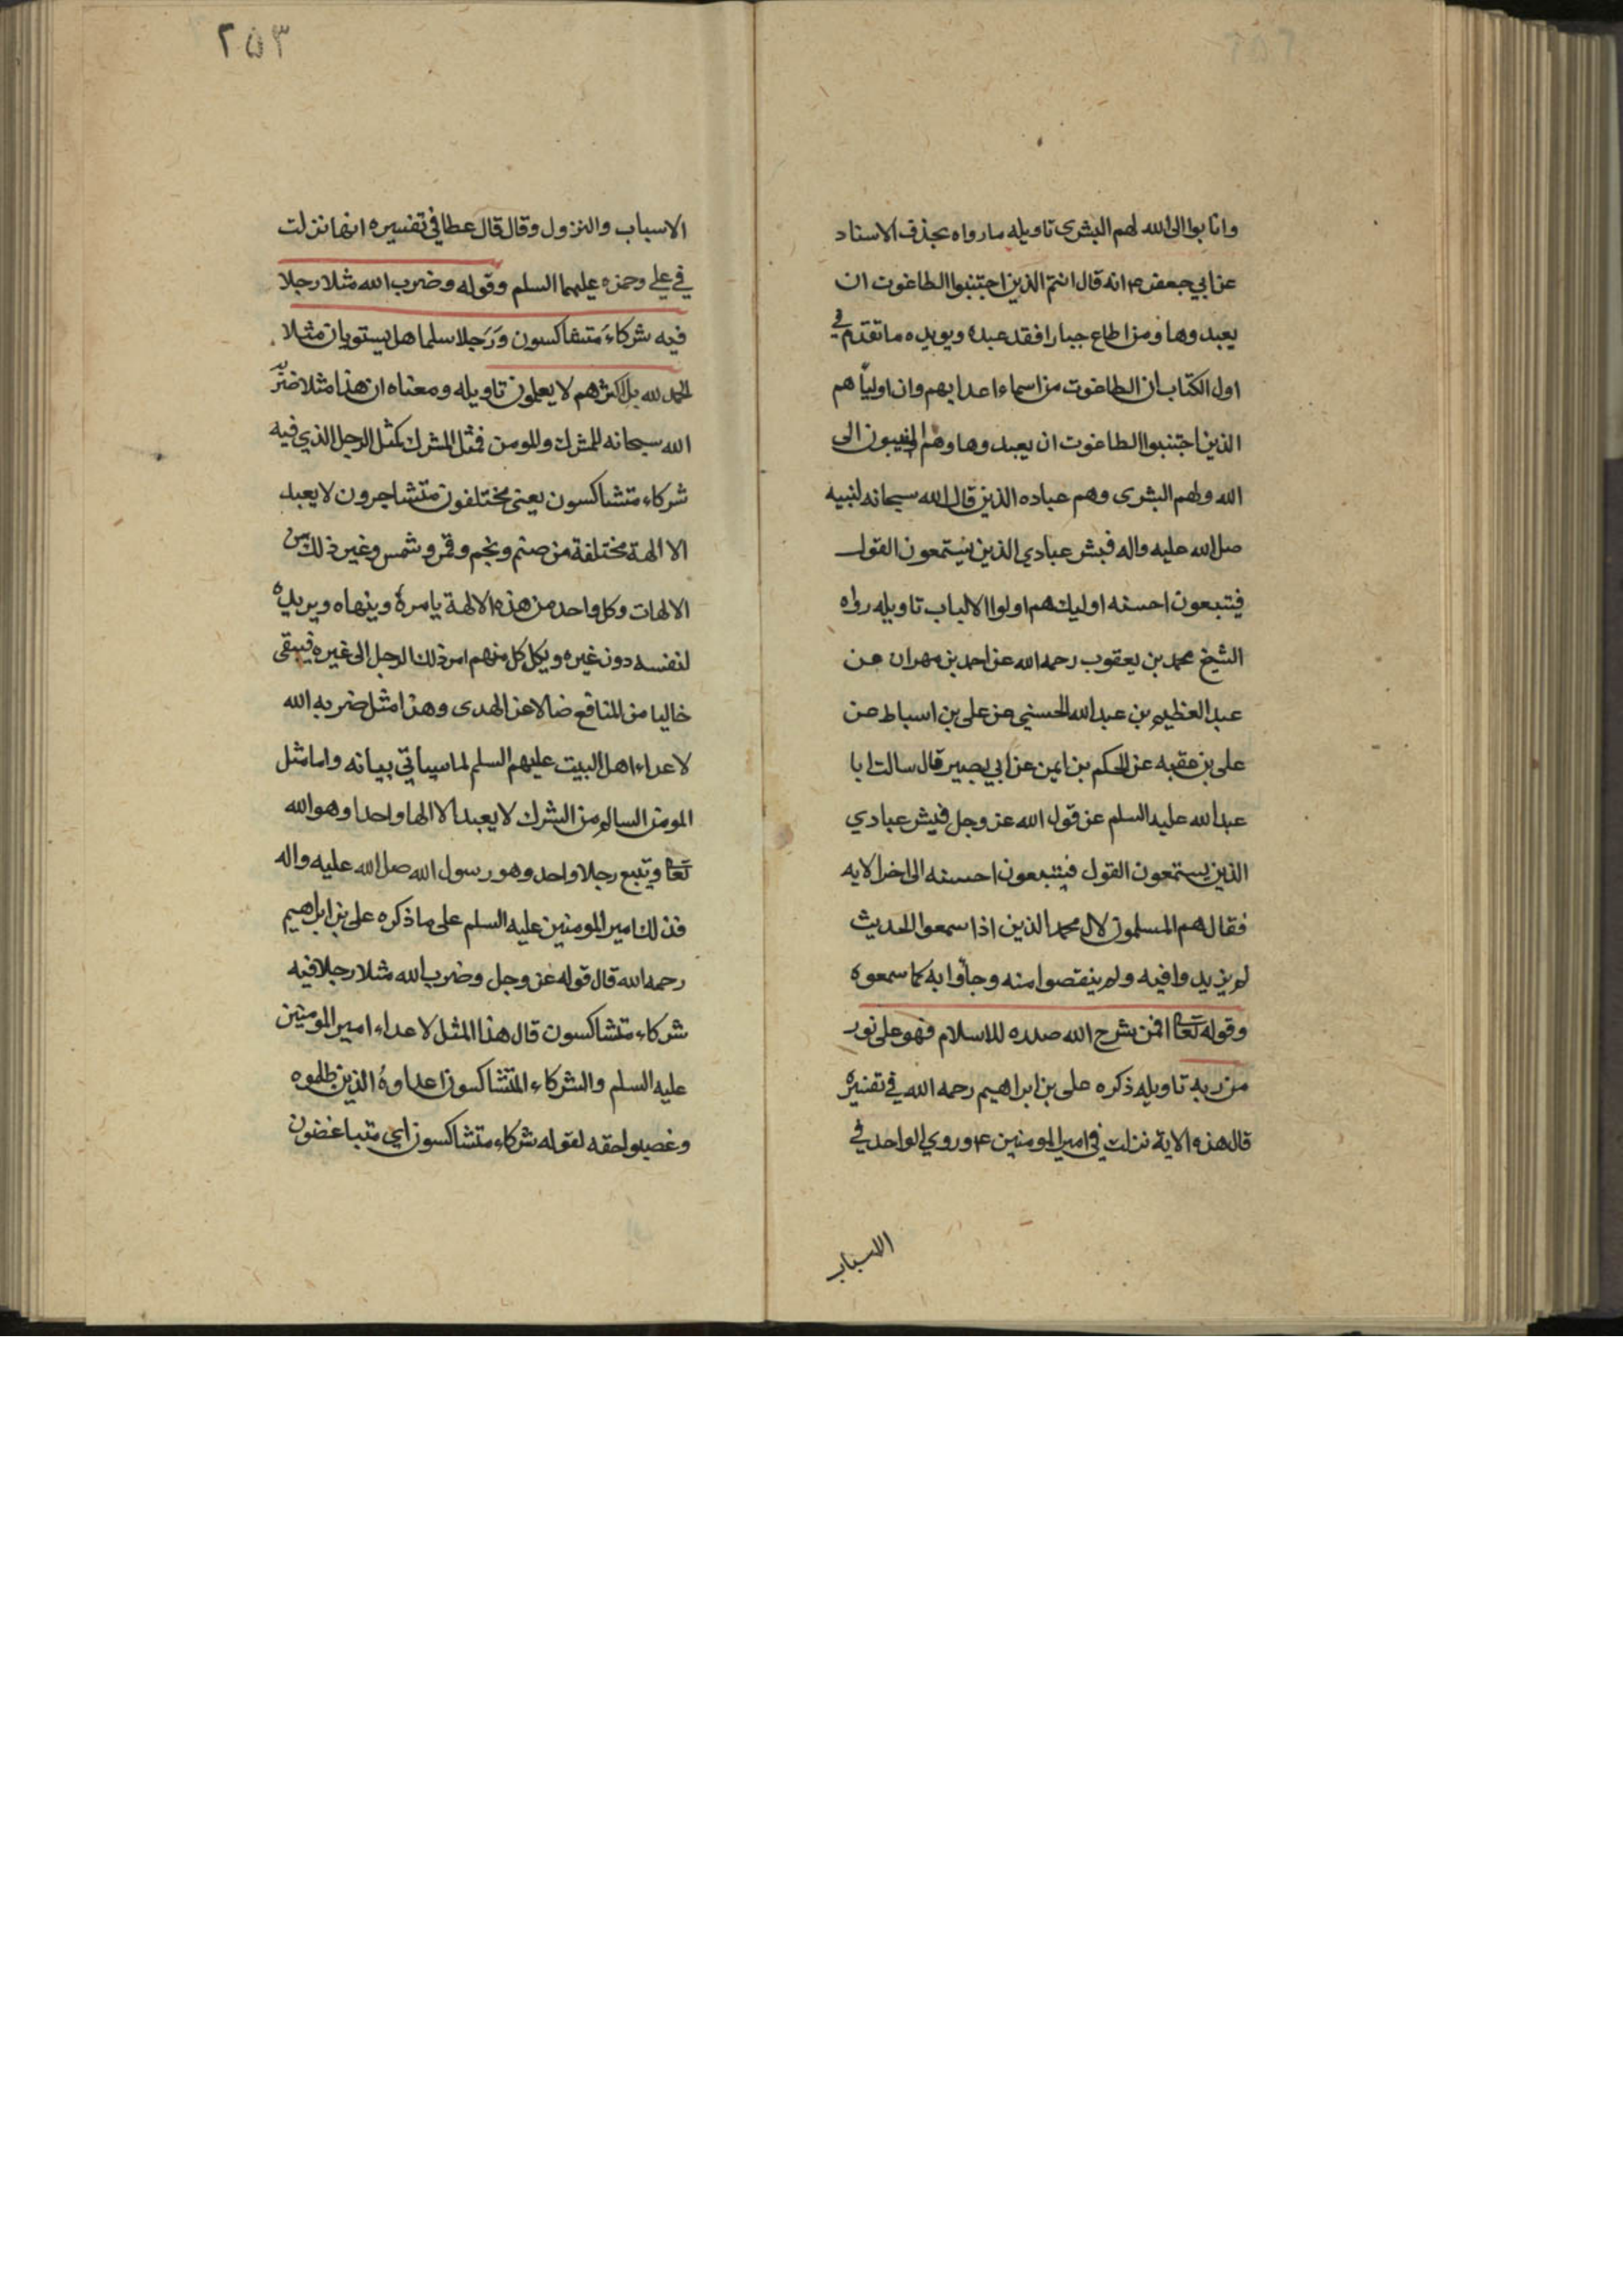 وانابوا الى الله لهم البشرى تاويله ما رواه بحذف الاسناد
عن ابي جعفر ع انه قال انتم الذين اجتنبوا الطاغوت ان
يعبدوها ومن اطاع جبارا فقد عبده ويويده ما تقدم في
اول الكتاب ان الطاغوت من اسماء اعدايهم وان اولياهم
الذين اجتنبوا الطاغوت ان يعبدوها وهم المنيبون الى
الله ولهم البشرى وهم عباده الذين قال الله سبحانه لنبيه
صل الله عليه واله فبشر عبادي الذين يستمعون القول
فيتبعون احسنه اوليك هم اولوا الالباب تاويله رواه
الشيخ محمد بن يعقوب رحمه الله عن احمد بن مهران عن
عبد العظيم بن عبد الله الحسني عن على بن اسباط عن
على بن عقبه عن الحكم بن ايمن عن ابي بصير قال سالت ابا
عبد الله عليه السلم عن قول الله عز وجل فبشر عبادي
الذين يستمعون القول فيتبعون احسنه الى اخر الايه
فقال هم المسلمون لال محمد الذين اذا سمعوا الحديث
لم يزيدوا فيه ولم ينقصوا منه وجاؤا به كما سمعوه
وقوله تعا افمن شرح الله صدره للاسلام فهو على نور
من ربه تاويله ذكره على بن ابراهيم رحمه الله في تفسيره
قال هذه الاية نزلت في امير المومنين ع وروي الواحدي في
الاسباب
٢٥٣
الاسباب والنزول وقال قال عطا في تفسيره انها نزلت
في علي وحمزه عليهما السلم وقوله وضرب الله مثلا رجلا
فيه شركاء متشاكسون ورجلا سلما هل يستويان مثلا
الحمد لله بل اكثرهم لا يعلمون تاويله ومعناه ان هذا مثلا ضربه
الله سبحانه للمشرك وللمومن فمثل المشرك كمثل الرجل الذي فيه
شركاء متشاكسون يعنى مختلفون متشاجرون لا يعبد
الا الهة مختلفة من صنم ونجم وقمر وشمس وغير ذلك من
الالهات وكل واحد من هذه الالهة يامره وينهاه ويريده
لنفسه دون غيره ويكل كل منهم امر ذلك الرجل الى غيره فيبقى
خاليا من المنافع ضالا عن الهدى وهذا مثل ضربه الله
لاعداء اهل البيت عليهم السلم لما سياتي بيانه واما مثل
المومن السالم من الشرك لا يعبد الا الها واحدا وهو الله
تعا ويتبع رجلا واحد وهو رسول الله صل الله عليه واله
فذلك امير المومنين عليه السلم على ما ذكره على بن ابراهيم
رحمه الله قال قوله عز وجل وضرب الله مثلا رجلا فيه
شركاء متشاكسون قال هذا المثل لاعداء امير المومنين
عليه السلم والشركاء المتشاكسون اعداوه الذين ظلموه
وغصبوا حقه لقوله شركاء متشاكسون اي متباغضون